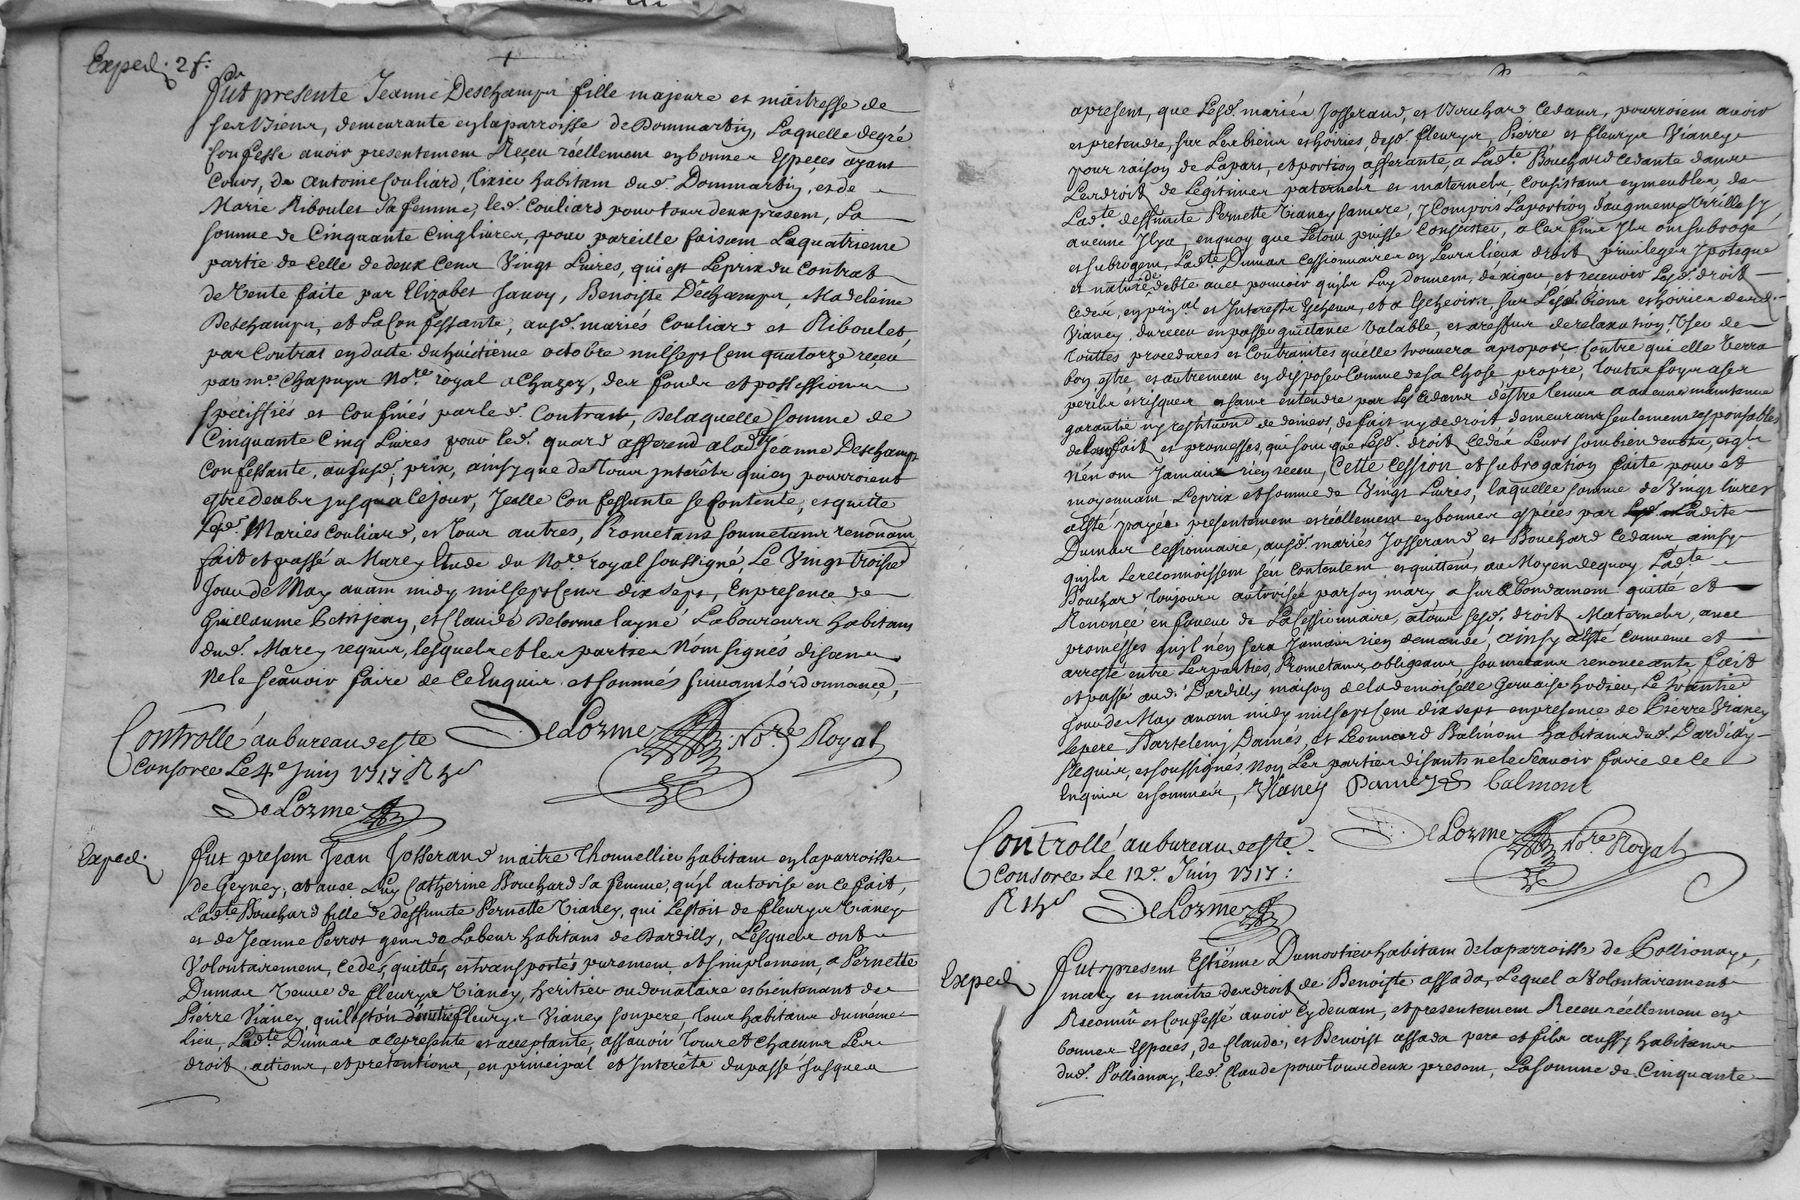 Exped. 2 f.
Fut presente Jeanne Deschamps fille majeure et maitresse de
ses biens, demeurante en la parroisse de Dommartin, Laquelle de gré
Confesse avoir presentement Reçeu réellement en bonnes Espèces ayant
Cours, de antoine Couliard, habitant dud. Dommartin, et de
Marie Riboulet sa femme, led. Couliard pour tous deux present, La
somme de Cinquante Cinq livres, pour pareille faisant La quatrieme
partie de celle de deux Cens Vingt Livres, qui est Le prix du Contrat
de Vente faite par Elizabet Janoy, Benoiste Deschamps, Madeleine
Deschamps, et La Confessante, ausd. mariés Couliard et Riboulet,
par Contrat en datte du huitieme octobre mil sept Cent quatorze reçeu
par me. Chapuys Nore. royal a Chazey, des fonds et possessions
speciffiés et Confinés par led. Contrat, De laquelle somme de
Cinquante Cinq Livres pour led. quard afferend a lad. Jeanne Deschamps
Confessante, au susd. prix, ainsy que de tous interêts qui en pourroient
estre deubs jusqua ce jour, Icelle Confessante se Contente, et quitte
Lesd. Mariés Couliard, et tous autres, Prometans soumetans renonçant
fait et passé a Marcy Etude du Nore. royal soussigné Le Vingt troisie
Jour de May avant midy mil sept Cens dix sept, En presence de
Guillaume Petitjean, et Claude Delorme layné Laboureurs habitans
dud. Marcy requis, lesquels et les parties N'ont signés disans
Ne le sçavoir faire de Ce Enquis et sommés suivant L'ordonnance,
DeLorme Nore. Royal
Controllé au bureau de ste
Consorce Le 4e Juin 1717 R
DeLorme
Exped.
Fut present Jean Josserand maitre thonnellier habitant en la parroisse
de Geyney, et avec Luy Catherine Bouchard sa femme, qu'yl autorise en ce fait,
Ladte. Bouchard fille de deffunte Pernette Vianey, qui L'estoit de fleurys Vianey
et de Jeanne Perrot gens de Labeur habitans de Dardilly, Lesquels ont
Volontairement, cedés, quittés, et transportés purement, et simplement, a Pernette
Dumas Veuve de fleurys Vianey, heritier ou donataire et bientenant de
Pierre Vianey qui l'estoit dudit fleurys Vianey son pere, tous habitans du méme
Lieu, Ladte. Dumas a ce presente et acceptante, assavoir tous et chacuns Les
droits, actions, et pretentions, en principal et Interêts du passé jusques
apresent, que Lesd. mariés Josserand, et Bouchard Cedans, pourroient avoir
et pretendre, sur Les biens et hoiries, desd. fleurys, Pierre et fleurys Vianey
pour raison de La part, et portion afferante a Ladte. Bouchard Cedante dans
Les droits de Legitimes paternels et maternels, Consistans en meubles, de
Ladte. deffunte Pernette Vianey sa mere, y Compris La portion d'augment Virille sy
aucune Il y a, en quoy que Le tout puisse Consister, a Ces fins Ils ont subrogé
et subrogent, Ladte. Dumas Cessionnaire en Leurs lieux droits privileges Ipoteque
et nature de debte avec pouvoir qu'yls Luy donnent, d'exiger, et recevoir Lesd. droits
Cedés, en prinal et Interests Echeus, et a Echeoir, sur Lesd. biens et hoiries desd.
Vianey, du receu en passer quittance Valable, et a ressus de relaxation, User de
touttes procedures et Contraintes qu'elle trouvera apropos Contre qui elle Verra
bon estre, et autrement en disposer Comme de sa Chose propre, toutes foys a ses
perils et risques et sans entendre par Les Cedans d'estre tenus a aucune maintenue
garantie ny restitution de deniers, de fait ny de droit demeurans seulement responsables
de leur fait et promesses, qui sont que Lesd. droits Cedés Leurs sont bien deubs, et qu'ils
N'en ont Jamais rien receu, Cette Cession et subrogation faite pour et
moyennant Le prix et somme de Vingt Livres, laquelle somme de Vingt livres
a esté payée presentement et réellement en bonnes espèces par Ladite
Dumas Cessionnaire, ausd. mariés Josserand et Bouchard Cedans ainsy
qu'yls Le reconnoissent s'en Contentent et quittent, au Moyen de quoy Ladte.
Bouchard toujours autorisée par son mary a surabondament quitté et
Renoncé en faveur de La Cessionnaire, a tous sesd. droits Maternels, avec
promesses qu'yl n'en sera Jamais rien demandé, ainsy a esté Convenu et
arresté entre Les parties, Prometans, obligeans, soumetans renonceants, fait
et passé aud. Dardilly maison de la demoiselle Gervaise hodieu, Le trantie
Jour de May avant midy mil sept Cent dix sept en presence de Pierre Vianey
Le pere, Bartelemy Damés et Leonnard Balmont habitans dud. Dardilly
Requis, et soussignés, Non Les parties disants ne le sçavoir faire de Ce
Enquis et sommés, Vianey Damez balmont
DeLorme Nore Royal
Controllé au bureau de ste.
Consorce Le 12e. Juin 1717:
R
DeLorme
Exped.
Fut present Estienne Dumortier habitant de la parroisse de Pollionay,
mary et maitre des droits de Benoiste assada, Lequel a Volontairement
Reconnû et Confessé avoir Cy devant, et presentement Receu réellement en
bonnes Espèces, de Claude, et Benoist assada pere et fils aussy habitans
dud. Pollionay, led. Claude pour tous deux present, La somme de Cinquante